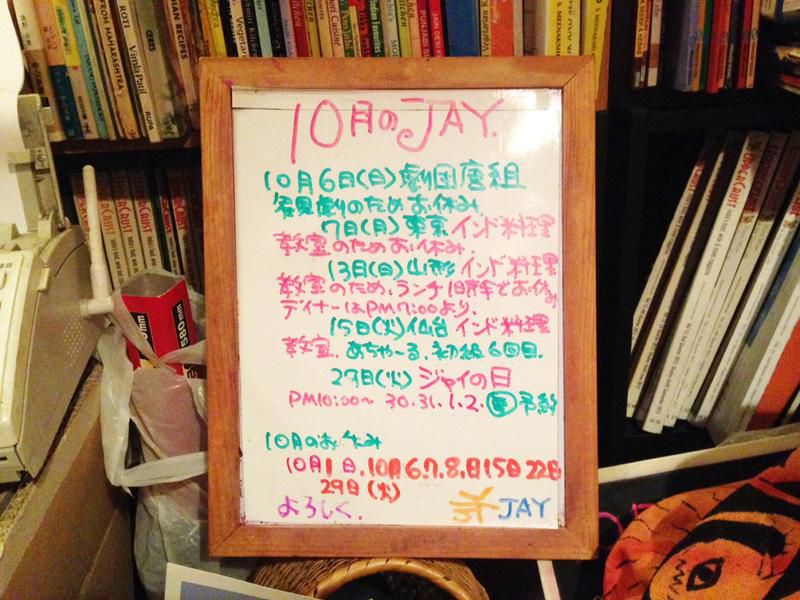 10月のJAY.
10月6日(日)劇団唐組
観劇のためお休み
7日(月)東京インド料理
教室のためお休み.
13日(日)山形インド料理
教室のため.ランチ時までお休み
ディナーはPM7:00より.
15日(火)仙台インド料理
教室.あちゃーる.初級6回目.
29日(火)ジャイの日
PM10:00〜 30.31.1.2. 予約
10月のお休み
10月1日.10月6.7.8.日15日22日
29日(火)
よろしく.
JAY
FROM MAHARASHTRA
ROTI
Vimla Patil
RUPA
CERES
INDIAN RECIPES
Vegetarian
Cuisine
PUNJABI
JAIN DESI
Vegetarian
UPPERCRUST
UPPERCRUST
580mm